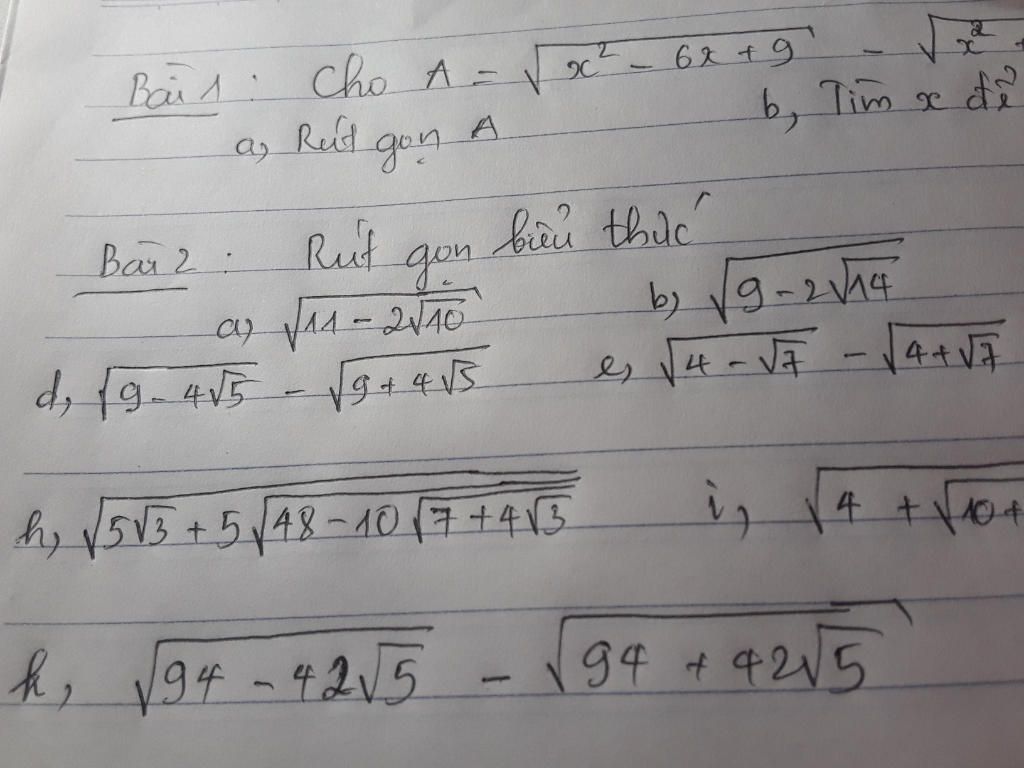 Bài 1 : Cho A = √(x² - 6x + 9) - √(x² +
a, Rút gọn A b, Tìm x để
Bài 2 : Rút gọn biểu thức
a, √(11 - 2√10) b, √(9 - 2√14)
d, √(9 - 4√5) - √(9 + 4√5) e, √(4 - √7) - √(4 + √7)
h, √(5√3 + 5√(48 - 10√(7 + 4√3))) i, √(4 + √(10 +
k, √(94 - 42√5) - √(94 + 42√5)